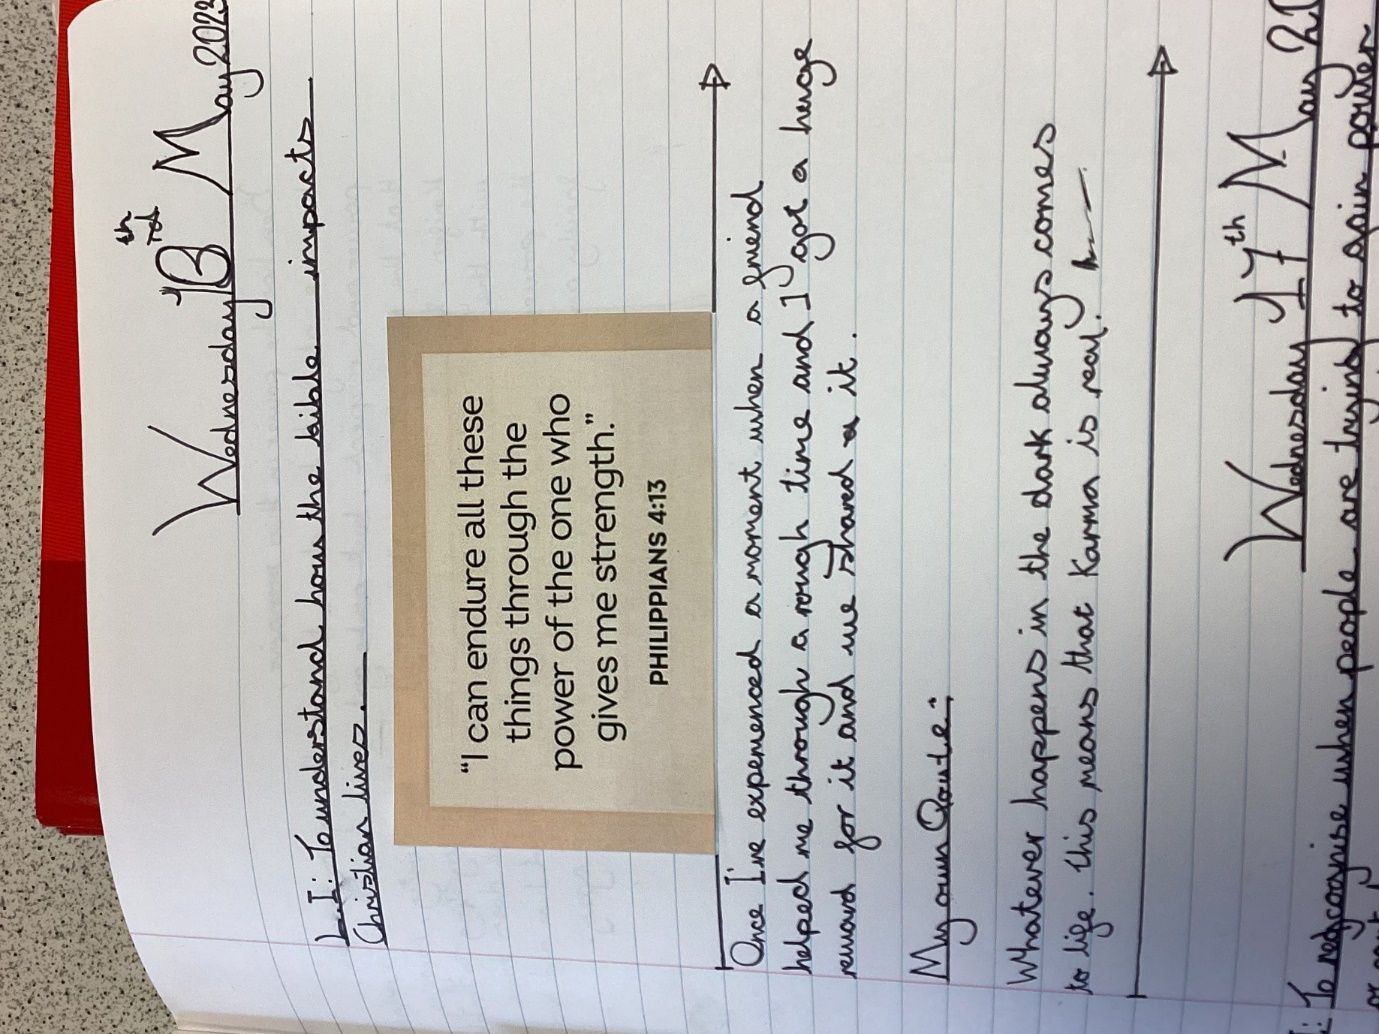 Wednesday 3th May 2023
L.I: To understand how the bible impacts
Christian lives.
“I can endure all these
things through the
power of the one who
gives me strength.”
PHILIPPIANS 4:13
Once I've experienced a moment when a friend
helped me through a rough time and I got a huge
reward for it and we shared it.
My own Qoute:
Whatever happens in the dark always comes
to life. this means that Karma is real.
Wednesday 17th May
To regconise when people are trying to gain power